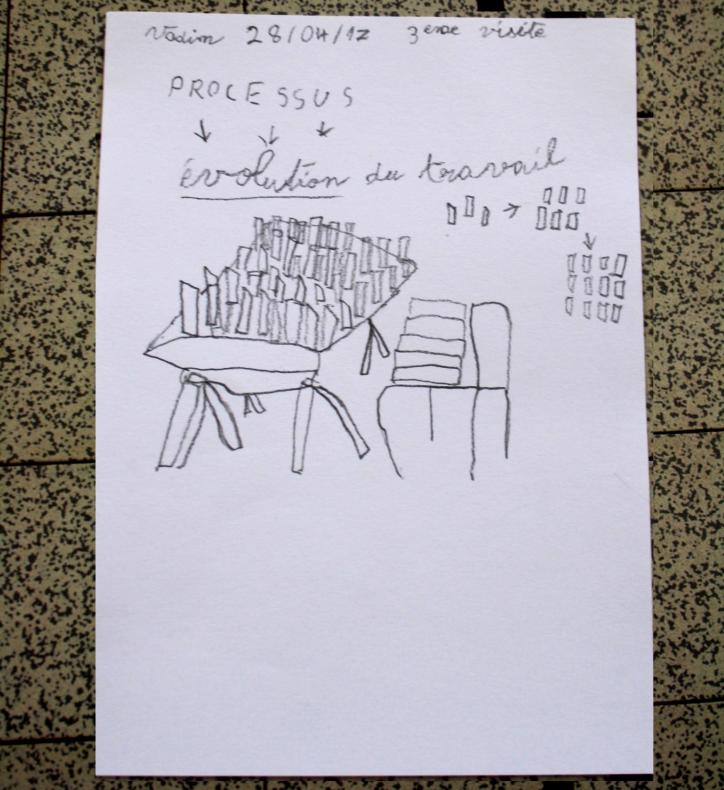 Vadim 28/04/12 3ème visite
PROCESSUS
évolution du travail